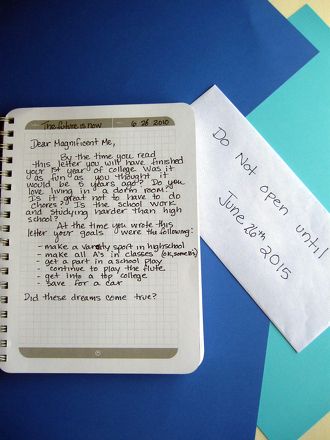 The future is now 6 26 2010
Dear Magnificent Me,
By the time you read
this letter you will have finished
your 1st year of college. Was it
as fun as you thought it
would be 5 years ago? Do you
love living in a dorm room?
Is it great not to have to do
chores? Is the school work
and studying harder than high
school?
At the time you wrote this
letter your goals were the following:
- make a varsity sport in highschool
- make all A's in classes (OK, some B's)
- get a part in a school play
- continue to play the flute
- get into a top college
- save for a car
Did these dreams come true?
Do Not open until
June 26th 2015